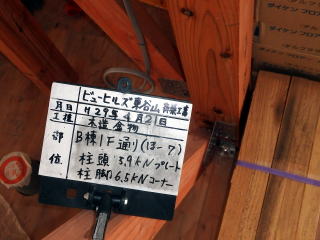 ビューヒルズ東谷山 新築工事
月日 H29年4月21日
工種 木造金物
部位 B棟1F通り(は-7)
柱頭 5.9kNプレート
柱脚 6.5kNコーナー
ダイケンフロア